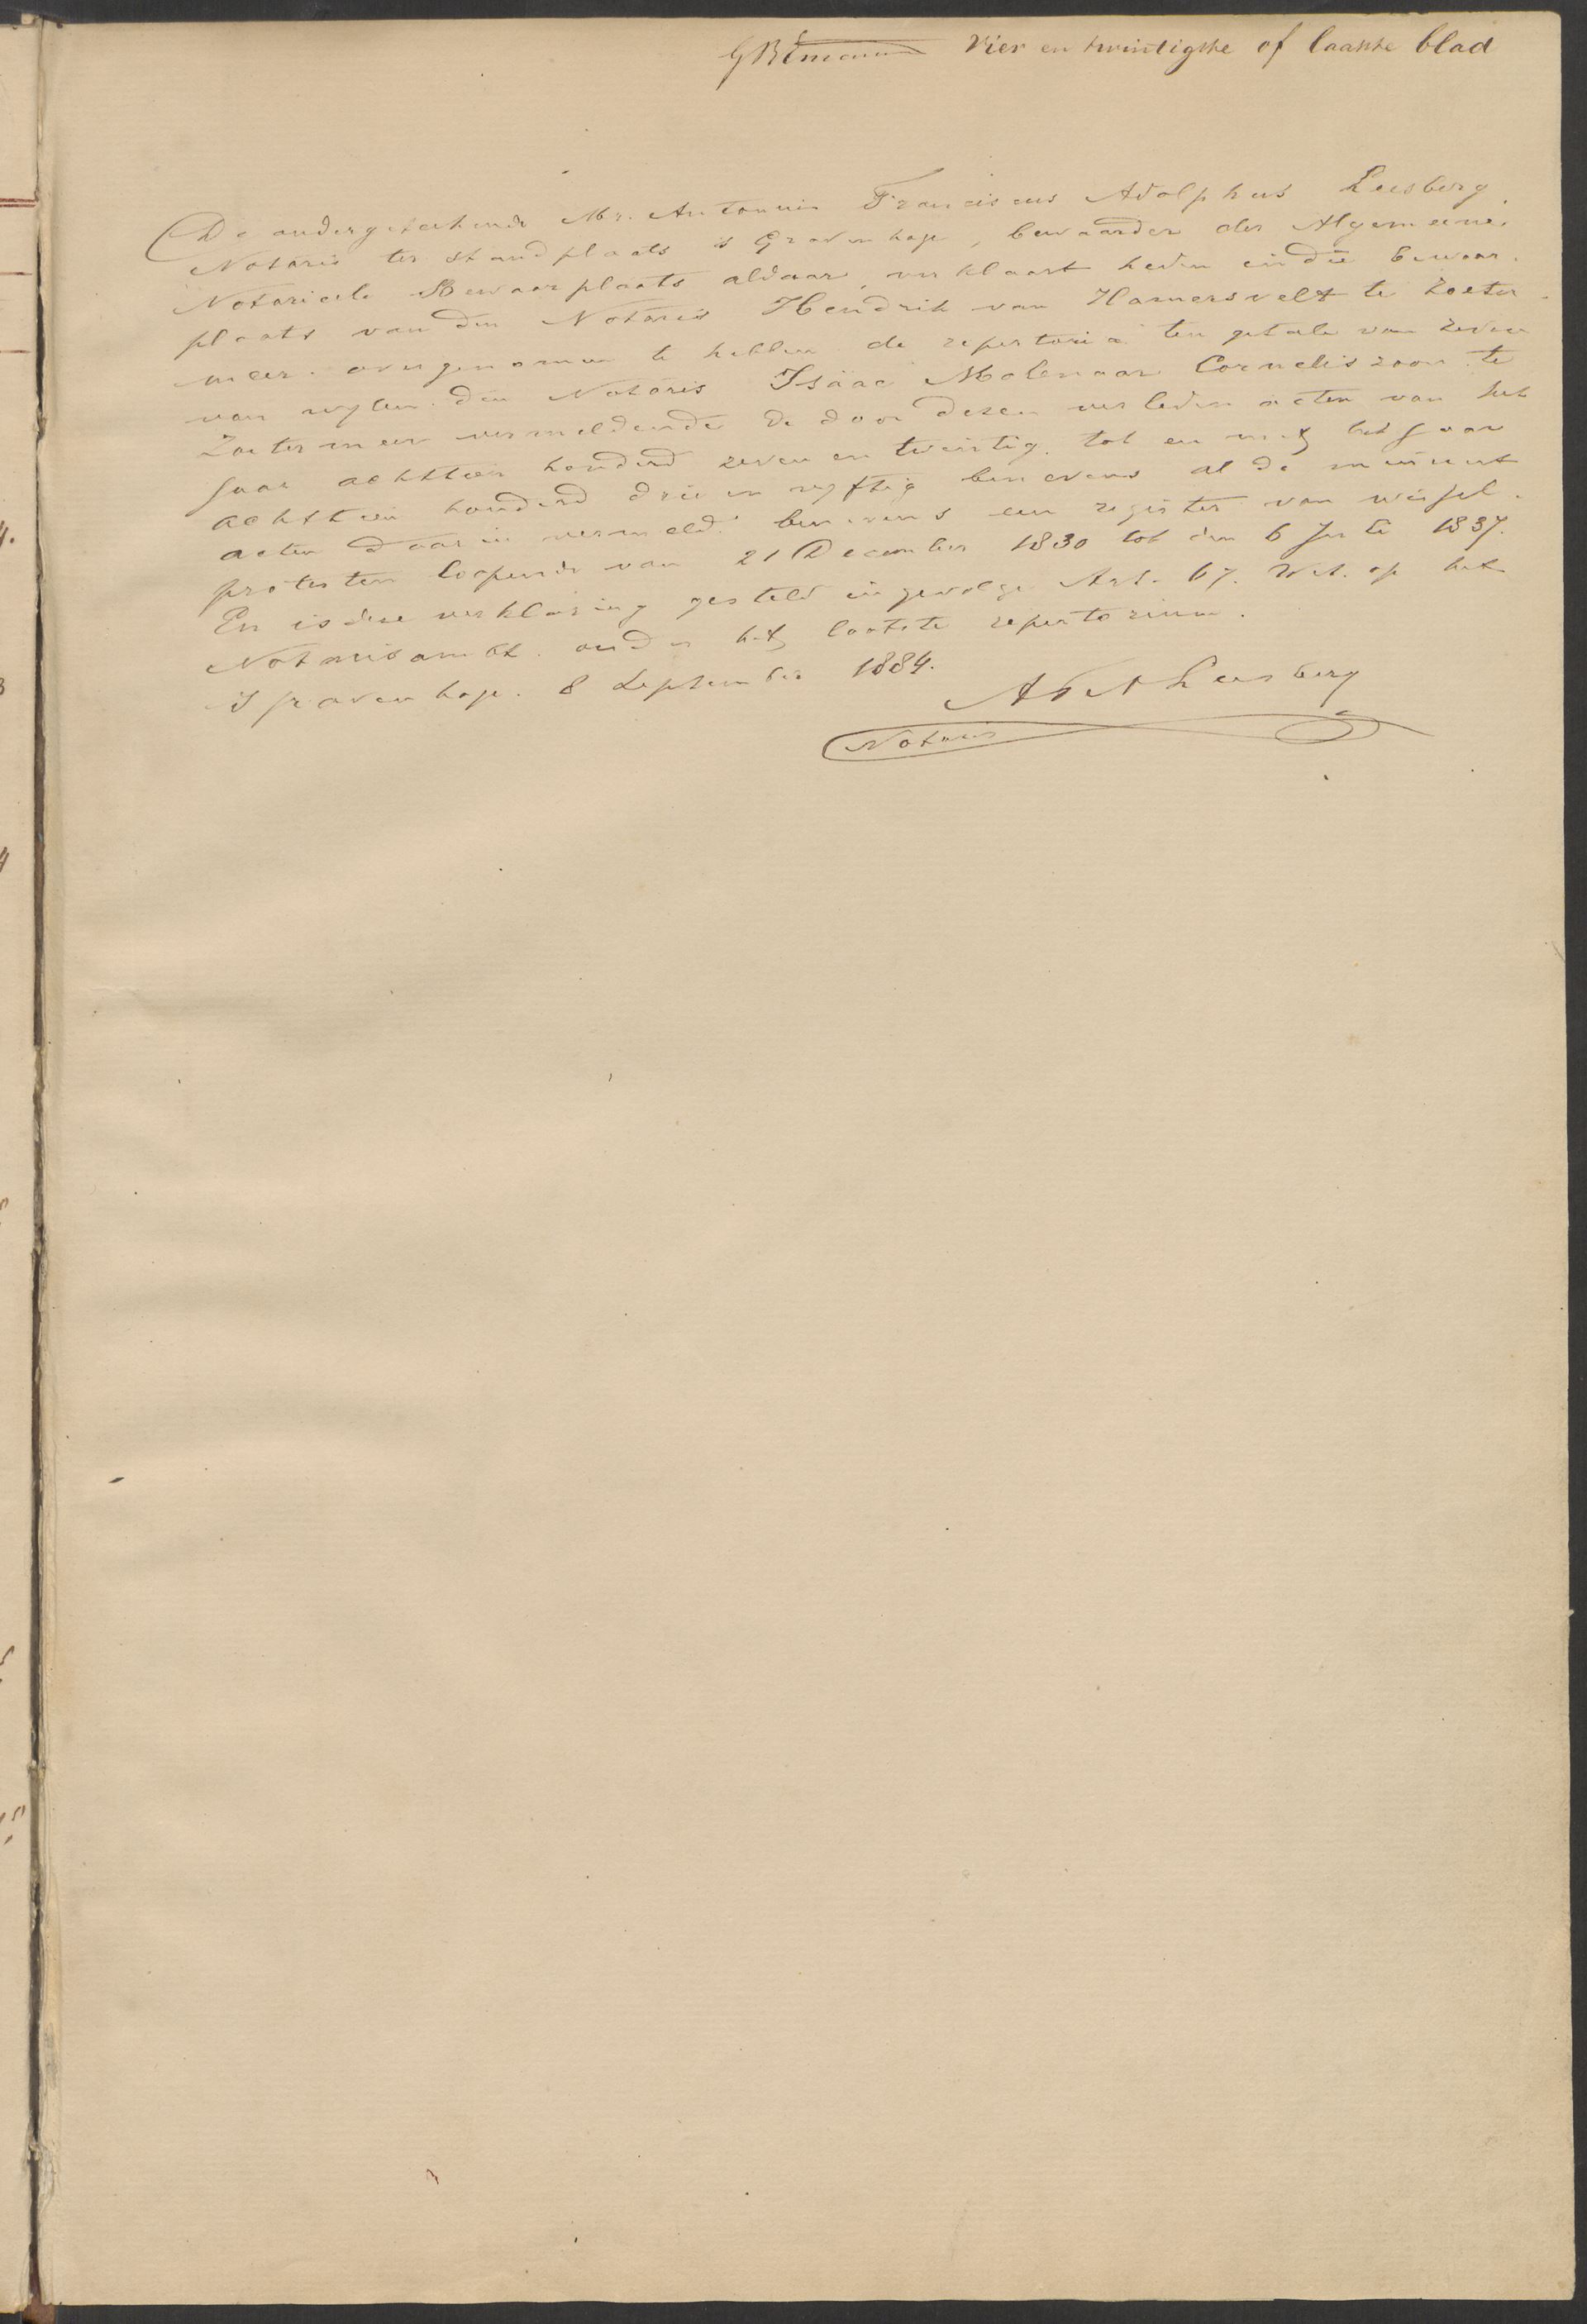 Vier en twintigste of laatste blad
De ondergeteekende Mr. Antonius Franciscus Adolphus Leesberg
Notaris ter standplaats 's Gravenhage, bewaarder der Algemeene
Notarieele Bewaarplaats aldaar, verklaart heden in die bewaar-
plaats van den Notaris Hendrik van Hamersvelt te Zoeter-
meer. overgenomen te hebben de repertoria ten getale van zeven
van wylen den Notaris Isäac Molenaar Corneliszoon te
Zoetermeer vermeldende de door dezen verleden acten van het
jaar achttien honderd zeven en twintig. tot en met het jaar
achttien honderd drie en vyftig benevens al de minuut
acten daarin vermeld. benevens een register van wissel-
protesten loopende van 21 December 1830 tot den 6 Juli 1837.
En is deze verklaring gesteld ingevolge Art. 67. Wet. op het
Notarisambt. onder het laatste repertorium.
's Gravenhage. 8 September 1884.
AFA Leesberg
Notaris